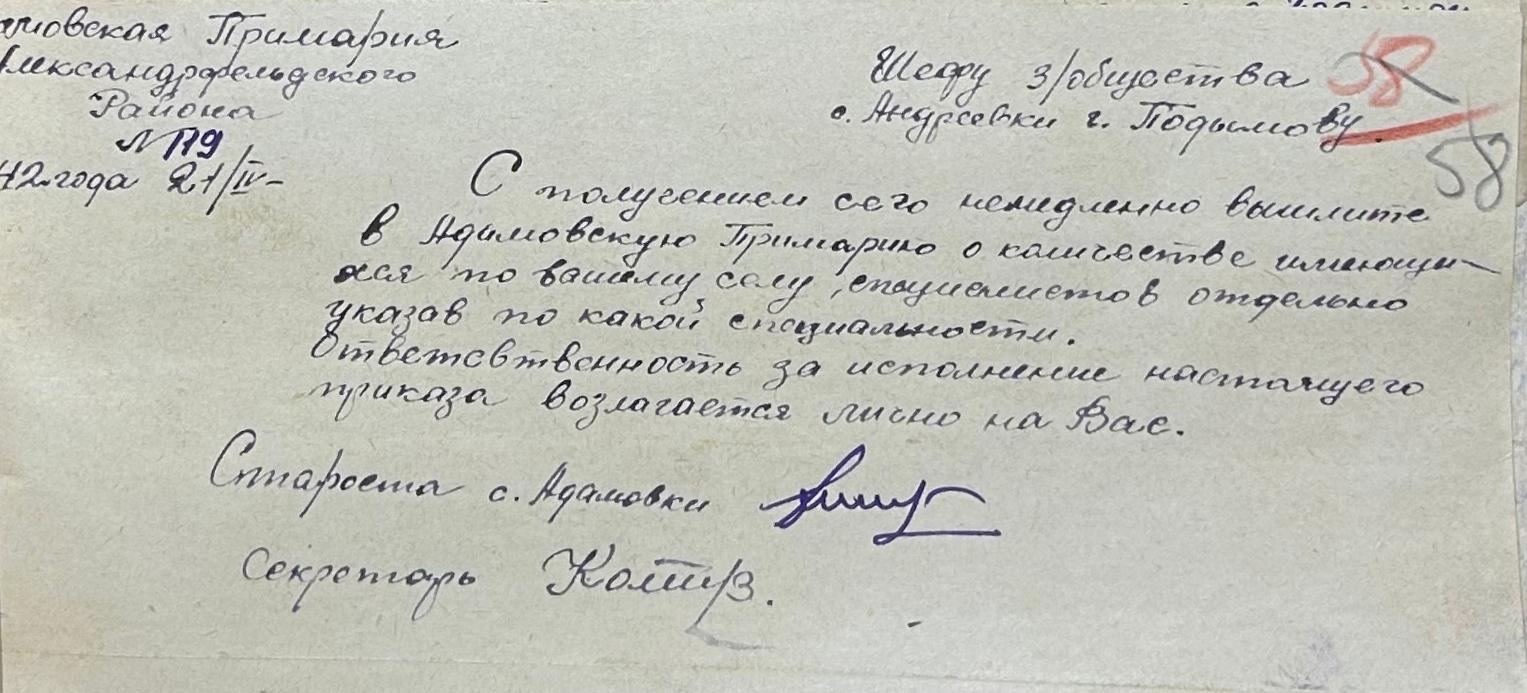 амовская Примария
Александрфельдского
Района
№ 119
42 года 21/IV-
Шефу з/общества 58
с. Андреевки г. Подымову.
58
С получением сего немедленно вышлите
в Адамовскую Примарию о количестве имеющи-
хся по вашему селу, специалистов отдельно
указав по какой специальности.
Ответсвтвенность за исполнение настоящего
приказа возлагается лично на Вас.
Староста с. Адамовки
Секретарь